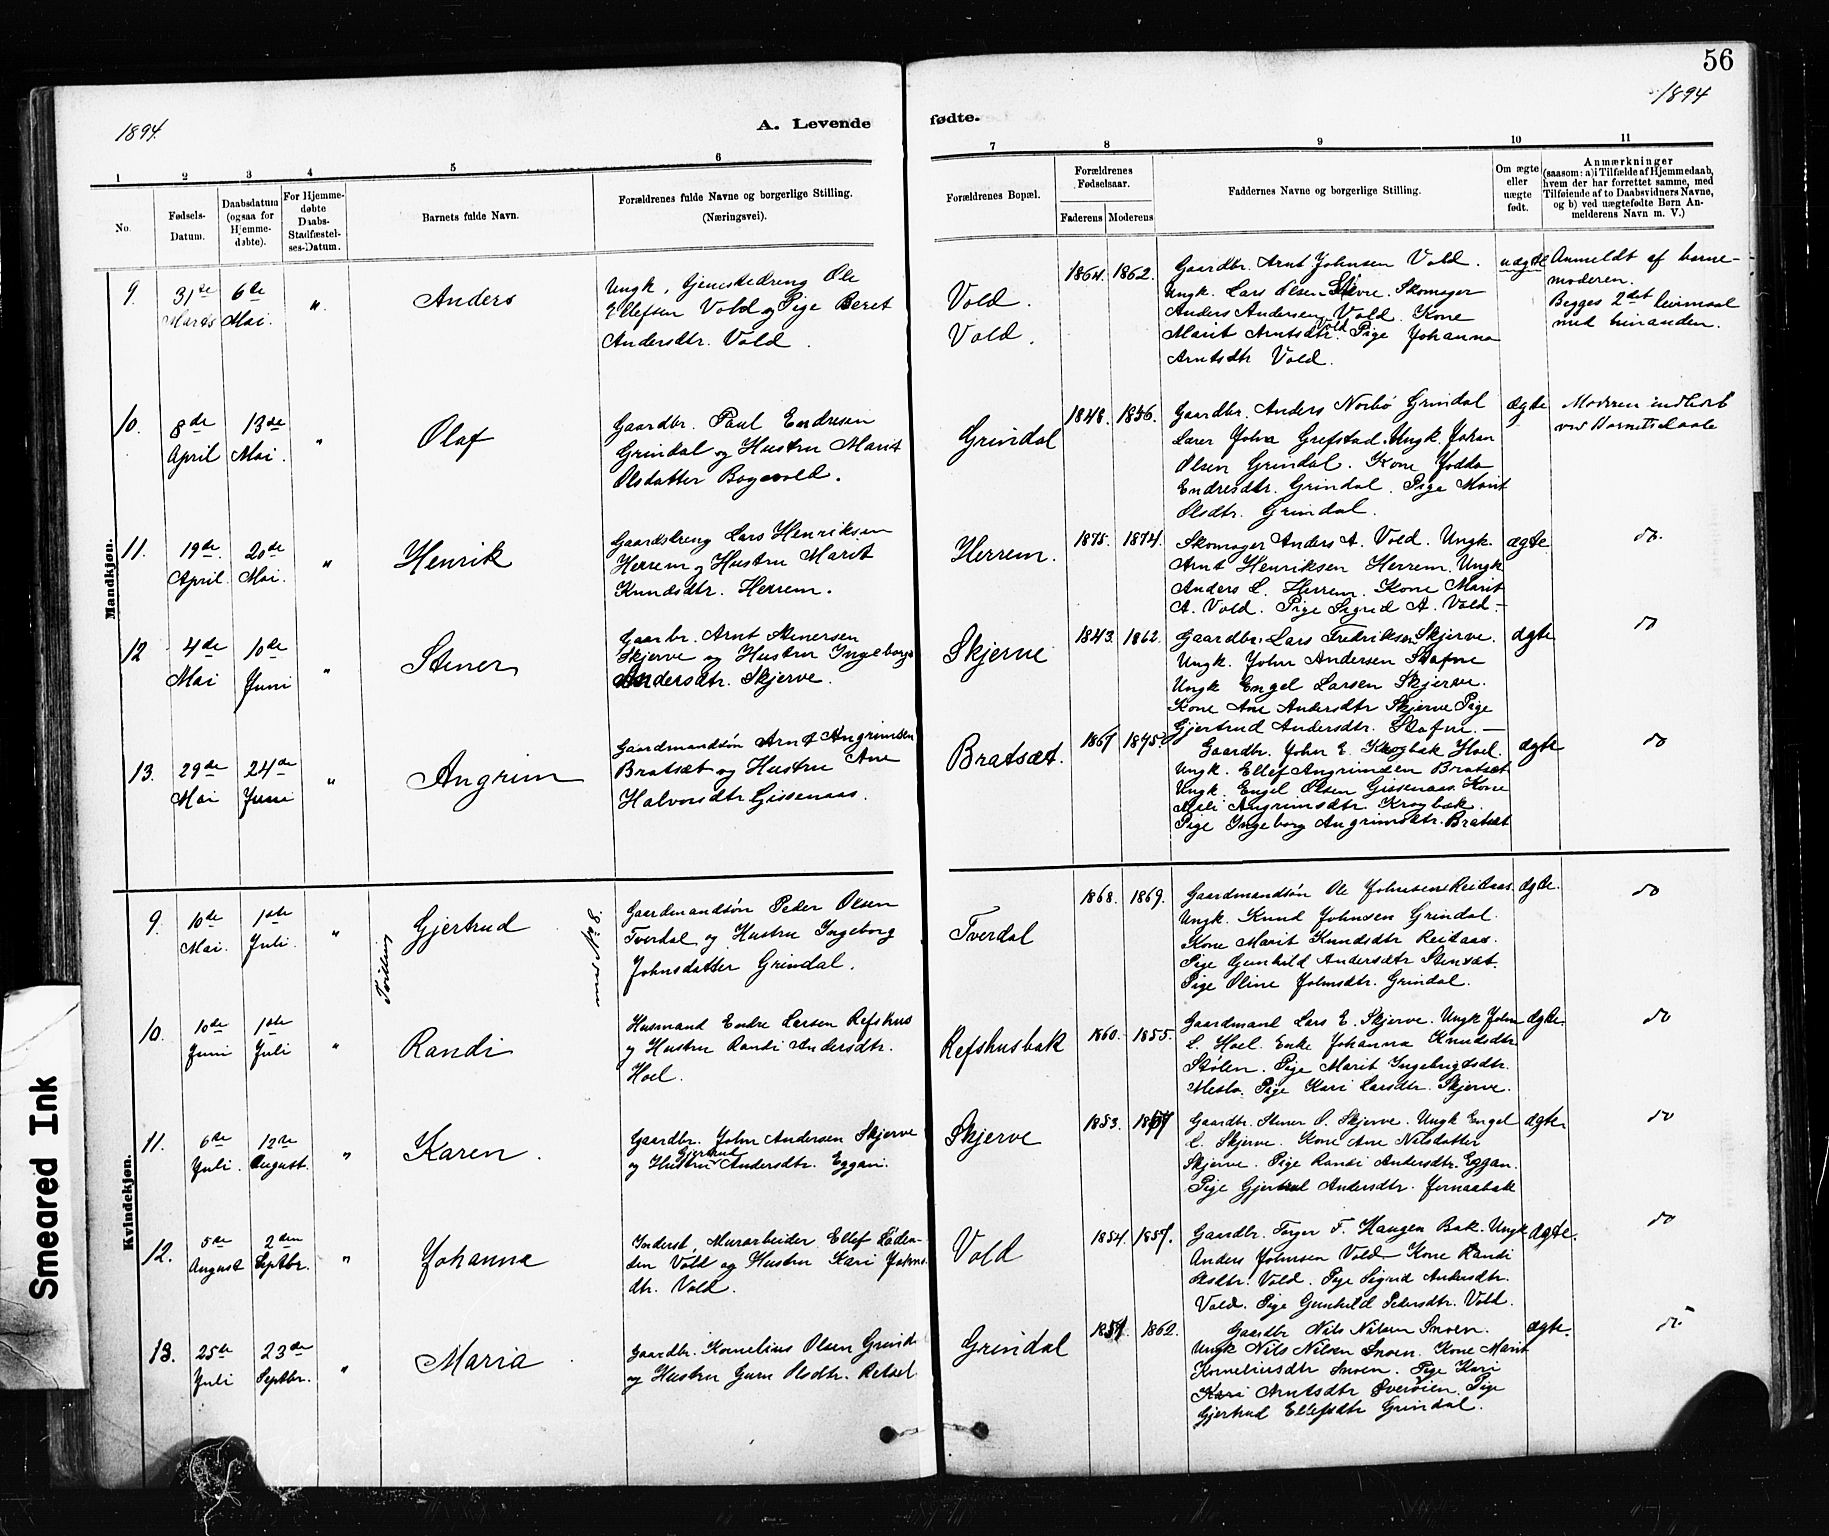 56
1894
1894
A. Levende
fødte.
1 2 3 4 5 6
7 8 9 10 11
No.
Fødsels-
Datum.
Daabsdatum
(ogsaa for
Hjemme-
døbte).
For Hjemme-
døbte
Daabs-
Stadfæstel-
ses-Datum.
Barnets fulde Navn.
Forældrenes fulde Navne og borgerlige Stilling.
(Næringsvei).
Forældrenes Bopæl.
Forældrenes
Fødselsaar.
Faderens Moderens
Faddernes Navne og borgerlige Stilling.
Om ægte
eller
uægte
født.
Anmærkninger
(saasom: a) i Tilfælde af Hjemmedaab,
hvem der har forrettet samme, med
Tilføiende af to Daabsvidners Navne,
og b) ved uægtefødte Børn An-
melderens Navn m. V.)
Mandkjøn.
9. 31te Marts 6te Mai. " Anders
Ungk., Tjenestedreng Ole
Ellefsen Vold og Pige Beret
Andersdtr. Vold.
Vold.
Vold.
1864. 1862.
Gaardbr. Arnt Johnsen Vold.
Ungk. Lars Olsen Skore. Skomager
Anders Andersen Vold. Kone
Marit Arntsdtr. Vold Pige Johanna
Arntsdtr Vold.
uægte
Anmeldt af barne-
moderen.
Begges 2det leiermaal
med hinanden.
10. 8de April 13de Mai. " Olaf
Gaardbr. Paul Endresen
Grindal og Hustru Marit
Olsdatter Bogevold.
Grindal
1848. 1856.
Gaardbr. Anders Norbø Grindal
Lærer John Grefstad. Ungk. Johan
Olsen Grindal. Kone
Endresdtr. Grindal. Pige Marit
Olsdtr. Grindal.
ægte
Moderen indledet
ved Barnets daab
11. 19de April 20de Mai. " Henrik
Gaardsdreng Lars Henriksen
Herrem og Hustru Marit
Knudsdtr. Herrem.
Herrem.
1875. 1874.
Skomager Anders A. Vold. Ungk.
Arnt Henriksen Herrem. Ungk
Anders L. Herrem. Kone Marit
A. Vold. Pige Sigrid A. Vold –
ægte
do.
12 4de Mai 10de Juni " Stener
Gaarbr. Arnt Stenersen
Skjerve og Hustru Ingeborg
Andersdtr. Skjerve.
Skjerve
1843. 1862.
Gaardbr. Lars Fredriksen Skjerve.
Ungk. John Andersen Stafne
Ungk Engel Larsen Skjerve.
Kone Ane Andersdtr Skjerve Pige
Gjertrud Andersdtr. Stafne. –
ægte
do
13. 29de Mai 24de Juni " Angrim
Gaardmandsøn Arnt Angrimsen
Bratsæt og Hustru Ane
Halvorsdtr Gissenaas.
Bratsæt.
Gaardbr. John E. Krogbak Hoel.
Ungk. Ellef Angrimsen Bratsæt
Ungk. Engel Olsen Gissenaas. Kone
Angrimsdtr. Krogbak.
Pige Ingeborg Angrimsdtr. Bratsæt
ægte
do
Kvindekjøn.
9. 10de Mai. 1ste Juli. " Gjertrud
Tvilling
med No 8.
Gaardmandsøn Peder Olsen
Tverdal og Hustru Ingeborg
Johnsdatter Grindal.
Tverdal
1868. 1869.
Gaardmandsøn Ole Johnsen Reitaas.
Ungk. Knud Johnsen Grindal.
Kone Marit Knudsdtr Reitaas.
Pige Gunhild Andersdtr Stensæt.
Pige Oline Johnsdtr. Grindal.
ægte.
do
10. 10de Juni 1ste Juli " Randi
Husmand Endre Larsen Refshus
og Hustru Randi Andersdtr.
Hoel.
Refshusbak
1860. 1855.
Gaardmand Lars E. Skjerve. Ungk John
L. Hoel. Enke Johanna Knudsdtr
Stölen. Pige Marit Ingebrigtsdtr.
Meslo. Pige Kari Larsdtr. Skjerve.
ægte.
do
11. 6te Juli. 12te August. " Karen.
Gaardbr. John Andersen Skjerve
og Hustru Gjertrud Andersdtr. Eggan.
Skjerve
1853.
Gaardbr. Stener S. Skjerve. Ungk Engel
L. Skjerve. Kone Ane Nilsdatter
Skjerve. Pige Randi Andersdtr. Eggan.
Pige Gjertrud Andersdtr. Jernaabak
ægte.
do
12. 5te August 2den Septbr. " Johanna
Inderst, Murarbeider Ellef
Vold og Hustru Kari Johns-
dtr. Vold.
Vold
1854. 1857.
Gaardbr. Torger F. Haugen Bak. Ungk
Anders Johnsen Vold – Kone Randi
Olsdtr. Vold. Pige Sigrid Andersdtr.
Vold. Pige Gunhild Pedersdtr. Vold.
ægte.
do
13. 25de Juli 23de Septbr. " Maria
Gaardbr. Kornelius Olsen Grindal
og Hustru Guru Olsdtr.
Grindal
1862.
Gaardbr Nils Nilsen Snoen.
Ungk Nils Nilsen Snoen. Kone Marit
Korneliusdtr Snoen. Pige Kari
Kari Arntsdtr Sverøien. Pige
Gjertrud Ellefsdtr Grindal.
ægte.
do
Smeared Ink